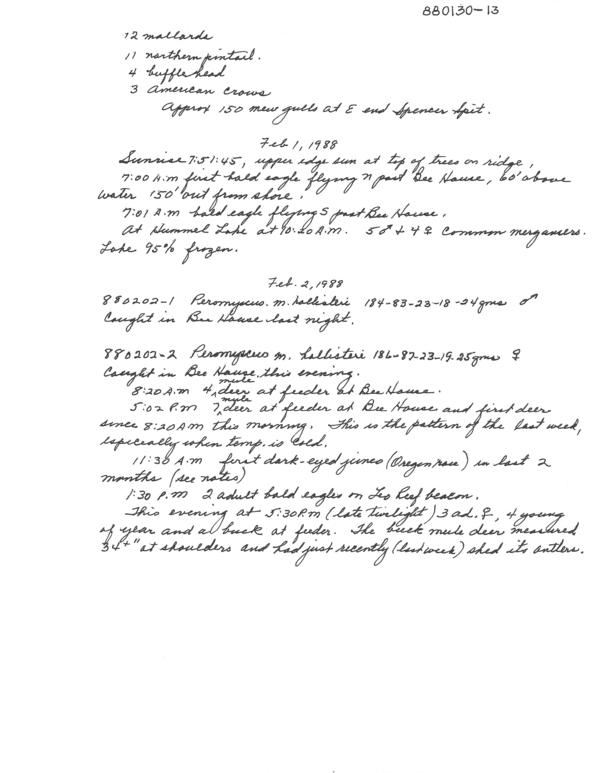 880130-13
12 mallards
11 northern pintail.
4 bufflehead
3 American crows
Approx 150 mew gulls at E end Spencer Spit.
Feb 1, 1988
Sunrise 7:51:45, upper edge sun at top of trees on ridge,
7:00 A.m first bald eagle flying N past Bee House, 60' above
water 150' out from shore.
7:01 A.m bald eagle flying S past Bee House.
At Hummel Lake at 10:20 A.m. 5♂ + 4♀ Common mergansers.
Lake 95% frozen.
Feb. 2, 1988
880202-1 Peromyscus. m. hollisteri 184-83-23-18-24gms ♂
Caught in Bee House last night.
880202-2 Peromyscus m. hollisteri 186-87-23-19. 25gms ♀
Caught in Bee House, this evening.
8:20 A.m 4 mule deer at feeder at Bee House.
5:02 P.m 7 mule deer at feeder at Bee House and first deer
since 8:20 AM this morning. This is the pattern of the last week,
especially when temp. is cold.
11:30 A.m first dark-eyed junco (Oregon race) in last 2
months (see notes)
1:30 P.m 2 adult bald eagles on Leo Reef beacon.
This evening at 5:30 P.m (late twilight) 3 ad. ♀, 4 young
of year and a buck at feeder. The buck mule deer measured
34+" at shoulders and had just recently (last week) shed its antlers.